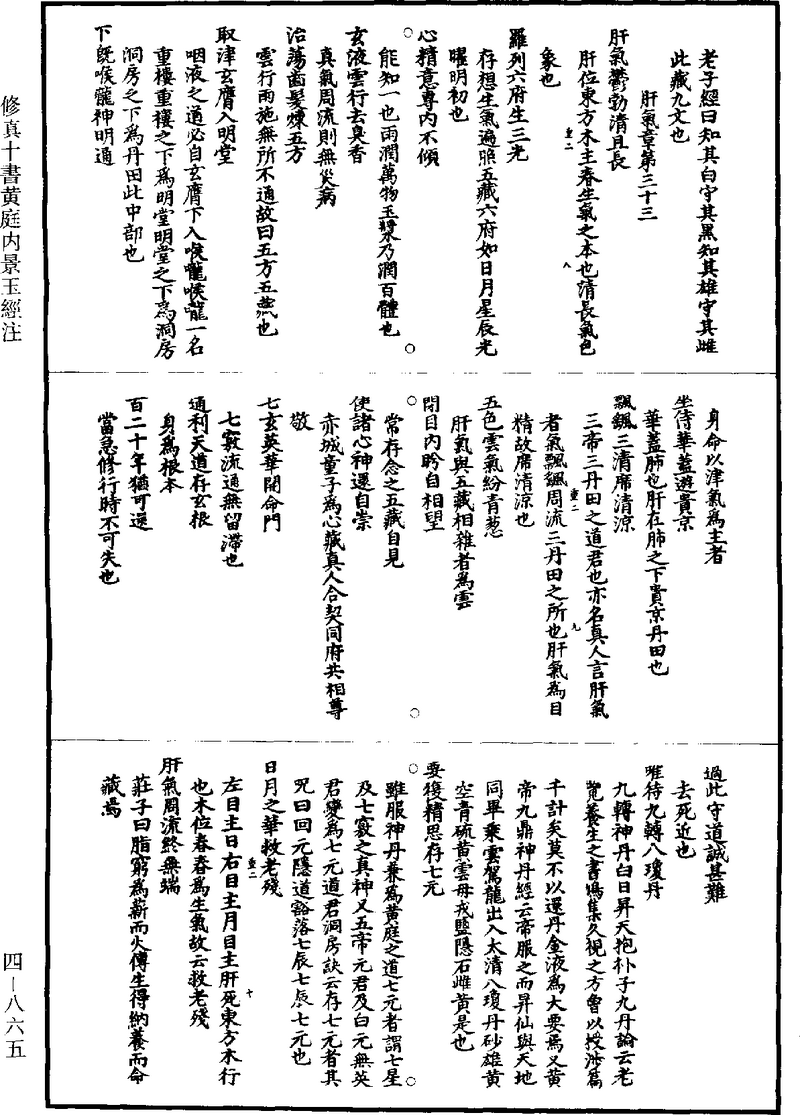 老子經曰知其白守其黑知其雄守其雌
此藏九文也
肝氣章第三十三
肝氣鬱勃清且長
肝位東方木主春生氣之本也清長氣色
象也
羅列六府生三光
存想生氣遍照五藏六府如日月星辰光
曜明初也
心精意專內不傾
能知一也雨潤萬物玉漿乃潤百體也
玄液雲行去臭香
真氣周流則無災病
治蕩齒髮煉五方
雲行雨施無所不通故曰五方五藏也
取津玄膺入明堂
咽液之道必自玄膺下入喉嚨喉嚨一名
重樓重樓之下為明堂明堂之下為洞房
洞房之下為丹田此中部也
下既喉嚨神明通
身命以津氣為主者
坐侍華蓋遊貴京
華蓋肺也肝在肺之下貴京丹田也
飄颻三清席清涼
三帝三丹田之道君也亦名真人言肝氣
者氣飄颻周流三丹田之所也肝氣為目
精故席清涼也
五色雲氣紛青葱
肝氣與五藏相雜者為雲
閉目內眄自相望
常存念之五藏自見
使諸心神還自崇
赤城童子為心藏真人合契同府共相尊
敬
七玄英華開命門
七竅流通無留滯也
通利天道存玄根
身為根本
百二十年猶可還
當急修行時不可失也
過此守道誠甚難
去死近也
唯待九轉八瓊丹
九轉神丹白日昇天抱朴子九丹論云老
覽養生之書鳩集久視之方曾以披涉篇
千計矣莫不以還丹金液為大要焉又黃
帝九鼎神丹經云帝服之而昇仙與天地
同畢乘雲駕龍出入太清八瓊丹砂雄黃
空青硫黃雲母戎鹽隱石雌黃是也
要復精思存七元
雖服神丹兼為黃庭之道七元者謂七星
及七竅之真神又五帝元君及白元無英
君變為七元道君洞房訣云存七元者其
咒曰回元隱道豁落七辰七辰七元也
日月之華救老殘
左目主日右目主月目主肝死東方木行
也木位春春為生氣故云救老殘
肝氣周流終無端
莊子曰脂窮為薪而火傳生得納養而命
藏焉
修真十書黃庭內景玉經注
四－八六五